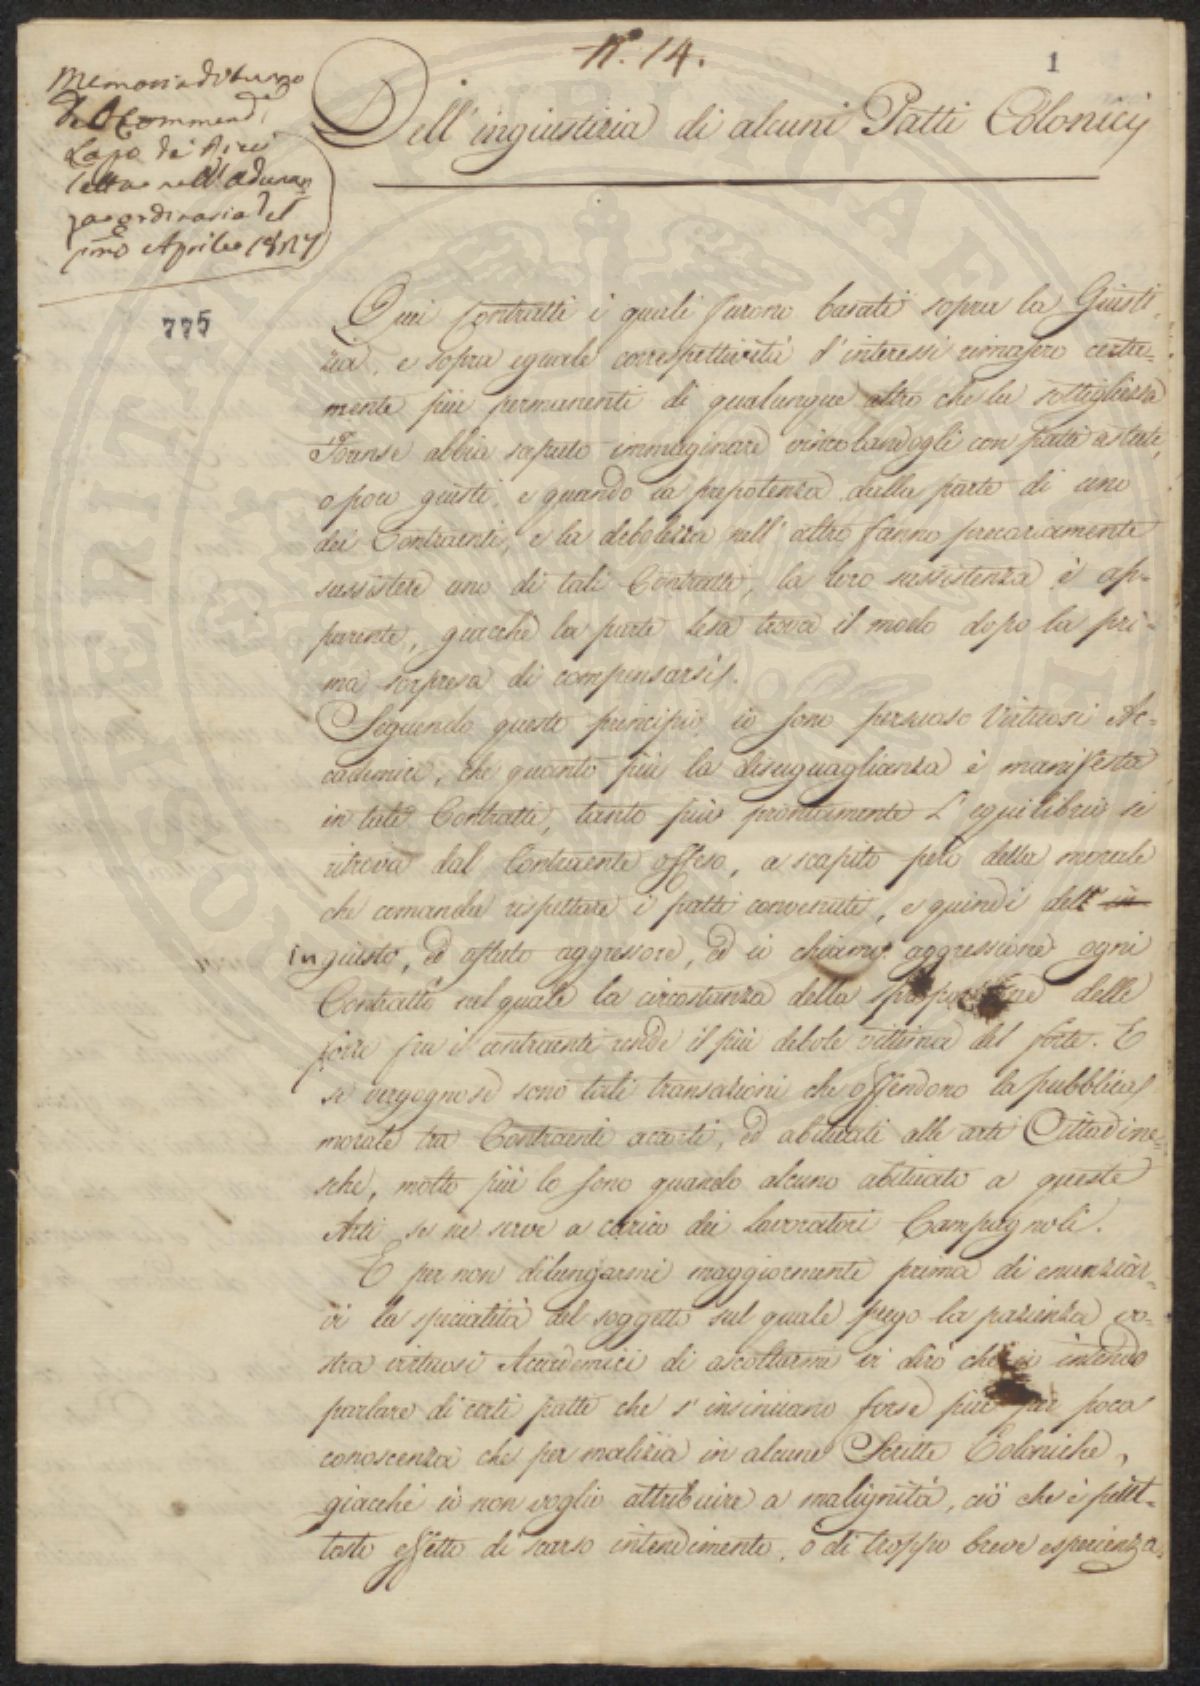 N.° 14.
1
Memoria di turno
del Commend.
Lapo de' Ricci
letta nell'adunan
za ordinaria del
primo Aprile 18
775
Dell'ingiustizia di alcuni Patti Colonicj
Quei Contratti i quali furono basati sopra la Giusti-
zia, e sopra eguale correspettività d'interessi rimasero certa-
mente più permanenti di qualunque altro che la sottigliezza
Forense abbia saputo immaginare vincolandogli con patti astuti,
o poco giusti, e quando la prepotenza dalla parte di uno
dei Contraenti, e la debolezza nell'altro fanno precariamente
sussistere uno di tali Contratti, la loro sussistenza è ap-
parente, giacchè la parte lesa trova il modo dopo la pri-
ma sorpresa di compensarsi.
Seguendo questo principio io sono persuaso Virtuosi Ac-
cademici, che quanto più la disuguaglianza è manifesta
in tali Contratti, tanto più prontamente l'equilibrio si
ritrova dal Contraente offeso, a scapito però della morale
che comanda rispettare i patti convenuti, e quindi dell' in
ingiusto, ed astuto aggressore, ed io chiamo aggressione ogni
Contratto nel quale la circostanza della sproporzione delle
forze fra i contraenti rende il più debole vittima del forte. E
se vergognose sono tali transazioni che offendono la pubblica
morale tra Contraenti accorti, ed abituati alle arti Cittadine-
sche, molto più lo sono quando alcuno abituato a queste
Arti se ne serve a carico dei Lavoratori Campagnoli.
E per non dilungarmi maggiormente prima di enunziar-
vi la specialità del soggetto sul quale prego la pazienza vo-
stra virtuosi Accademici di ascoltarmi vi dirò che io intendo
parlare di certi patti che s'insinuano forse più per poca
conoscenza che per malizia in alcune Scritte Coloniche,
giacchè io non voglio attribuire a malignità, ciò che è piut-
tosto effetto di scarso intendimento, o di troppo breve esperienza.